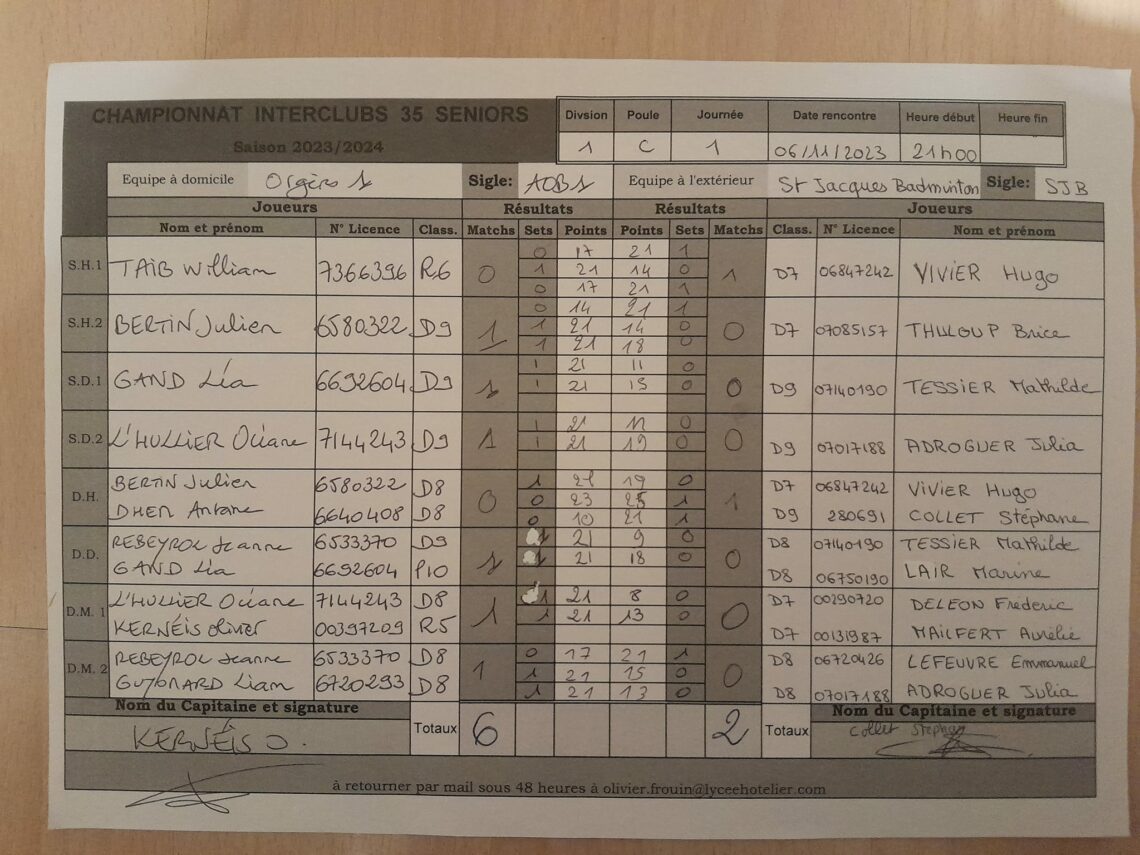 CHAMPIONNAT INTERCLUBS 35 SENIORS
Saison 2023/2024
Divsion Poule Journée Date rencontre Heure début Heure fin
1 C 1 06/11/2023 21h00
Equipe à domicile Orgères 1 Sigle: AOB1 Equipe à l'extérieur St Jacques Badminton Sigle: SJB
Joueurs Résultats Résultats Joueurs
Nom et prénom N° Licence Class. Matchs Sets Points Points Sets Matchs Class. N° Licence Nom et prénom
0 17 21 1
S.H.1 TAÏB William 7366396 R6 0 1 21 14 0 1 D7 06847242 VIVIER Hugo
0 17 21 1
0 14 21 1
S.H.2 BERTIN Julien 6580322 D9 1 1 21 14 0 0 D7 07085157 THULOUP Brice
1 21 18 0
1 21 11 0
S.D.1 GAND Léa 6692604 D9 1 1 21 15 0 0 D9 07140190 TESSIER Mathilde
1 21 11 0
S.D.2 L'HULLIER Océane 7144243 D9 1 1 21 19 0 0 D9 07017188 ADROGUER Julia
BERTIN Julien 6580322 D8 1 21 19 0 D7 06847242 VIVIER Hugo
D.H. 0 0 23 25 1 1
DHER Antoine 6640408 D8 0 10 21 1 D9 280691 COLLET Stéphane
REBEYROL Jeanne 6533370 D9 1 21 9 0 D8 07140190 TESSIER Mathilde
D.D. 1 1 21 18 0 0
GAND Léa 6692604 P10 D8 06750190 LAIR Marine
L'HULLIER Océane 7144243 D8 1 21 8 0 D7 00290720 DELEON Frédéric
D.M. 1 1 1 21 13 0 0
KERNÉIS Olivier 00397209 R5 D7 00131987 MAILFERT Aurélie
REBEYROL Jeanne 6533370 D8 0 17 21 1 D8 06720426 LEFEUVRE Emmanuel
D.M. 2 1 1 21 15 0 0
GUYONARD Liam 6720293 D8 1 21 13 0 D8 07017188 ADROGUER Julia
Nom du Capitaine et signature Totaux 6 2 Totaux Nom du Capitaine et signature
KERNÉIS O. Collet Stéphane
à retourner par mail sous 48 heures à olivier.frouin@lyceehotelier.com